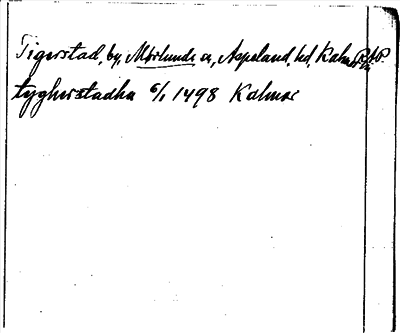 Tigerstad, by, Mörlunda sn, Aspeland, hd, Kalm
tygherstadha 6/1 1498 Kalmar